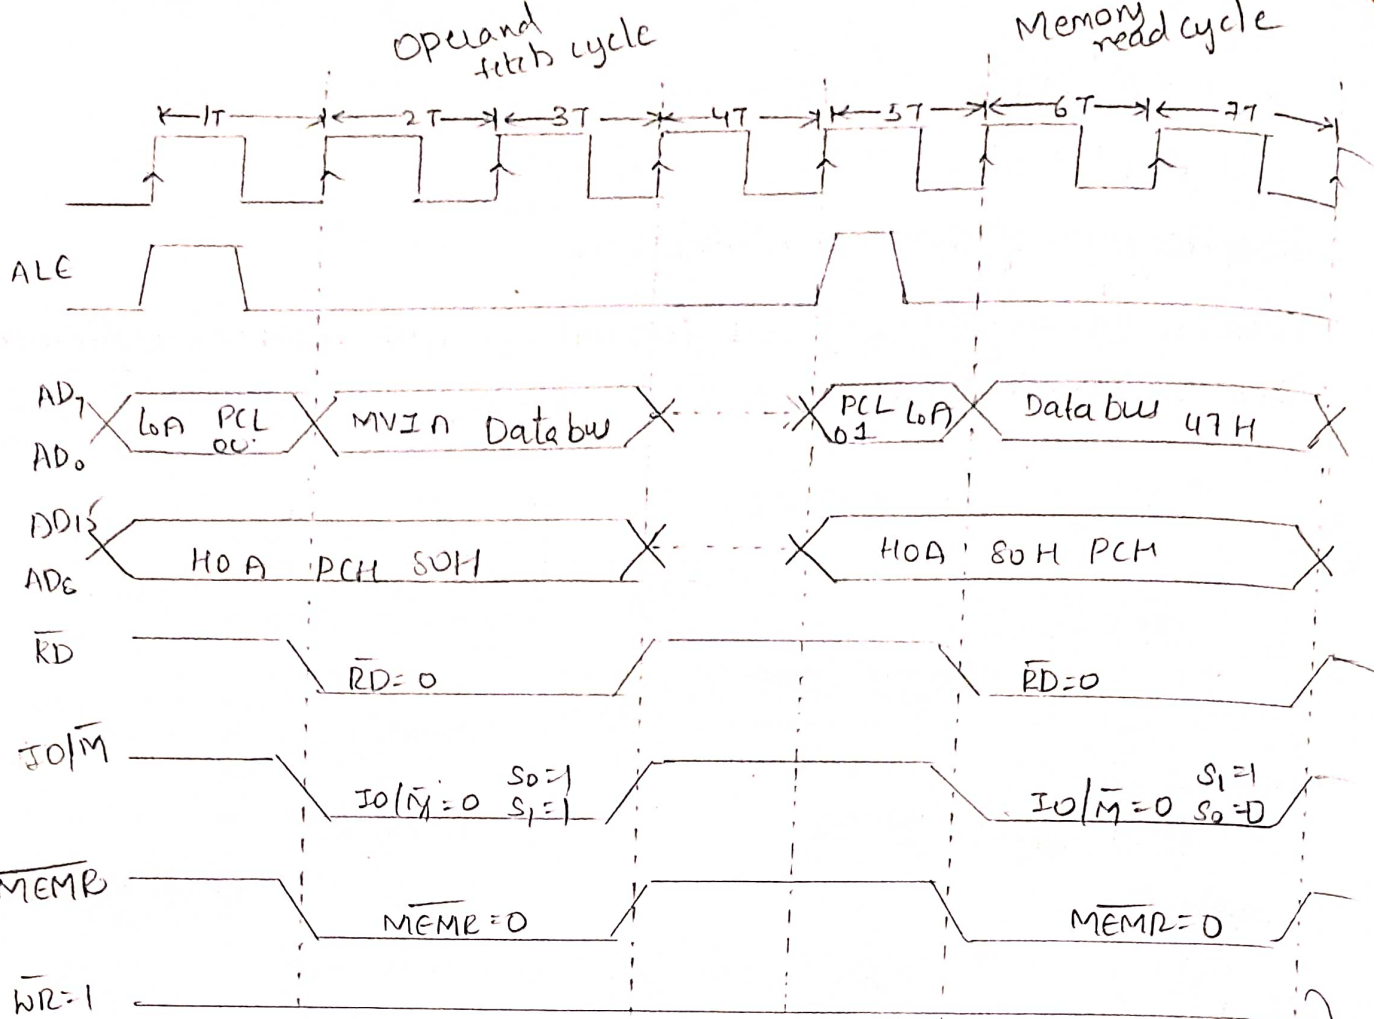 Operand fetch cycle
Memory read cycle
1T 2T 3T 4T 5T 6T 7T
ALE
AD7
AD0
LOA PCL
00
MVI A Data bus
PCL LOA
01
Data bus 47H
AD15
AD8
HOA PCH 80H
HOA 80H PCH
R̅D̅
R̅D̅=0
R̅D̅=0
IO/M̅
IO/M̅=0 S0=1
S1=1
IO/M̅=0 S1=1
S0=0
M̅E̅M̅R̅
M̅E̅M̅R̅=0
M̅E̅M̅R̅=0
W̅R̅=1